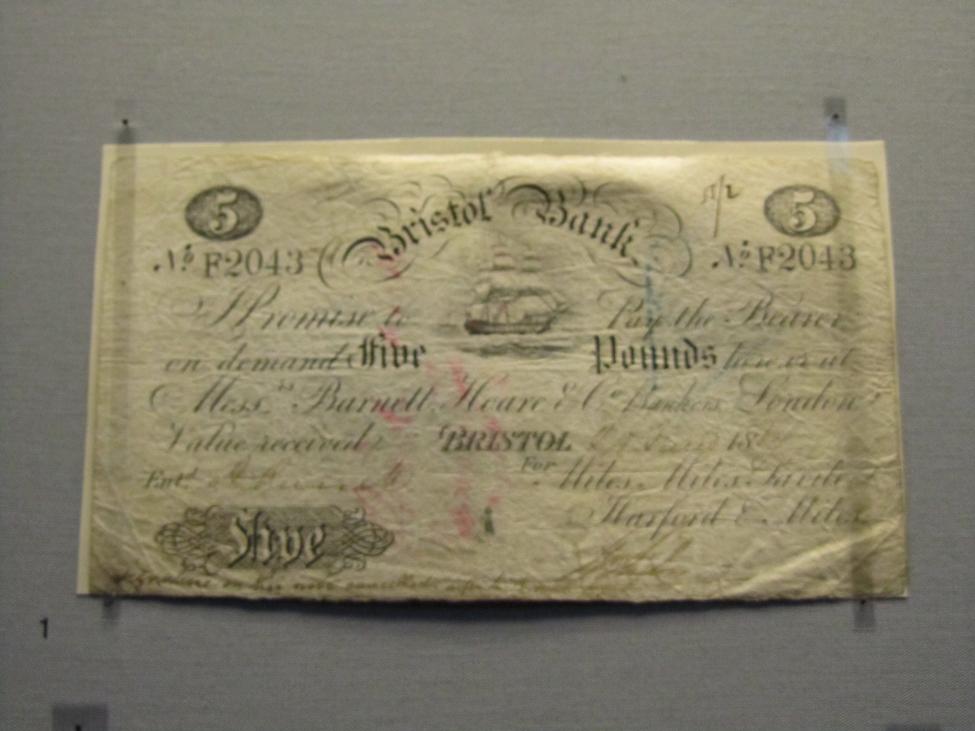 5 Bristol Bank 5
No F2043 No F2043
I Promise to Pay the Bearer
on demand Five Pounds here or at
Messrs Barnett Hoare & Co Bankers London
Value received BRISTOL 18
For Miles Miles
Entd Harford & Miles
Five
1